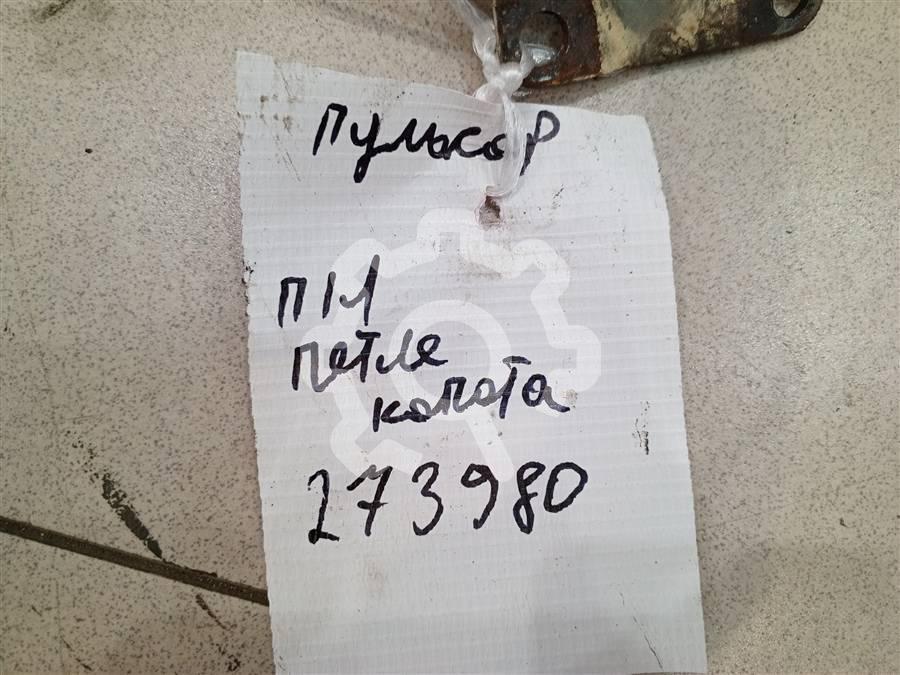 Пульсар
П/Л
петля
капота
273980